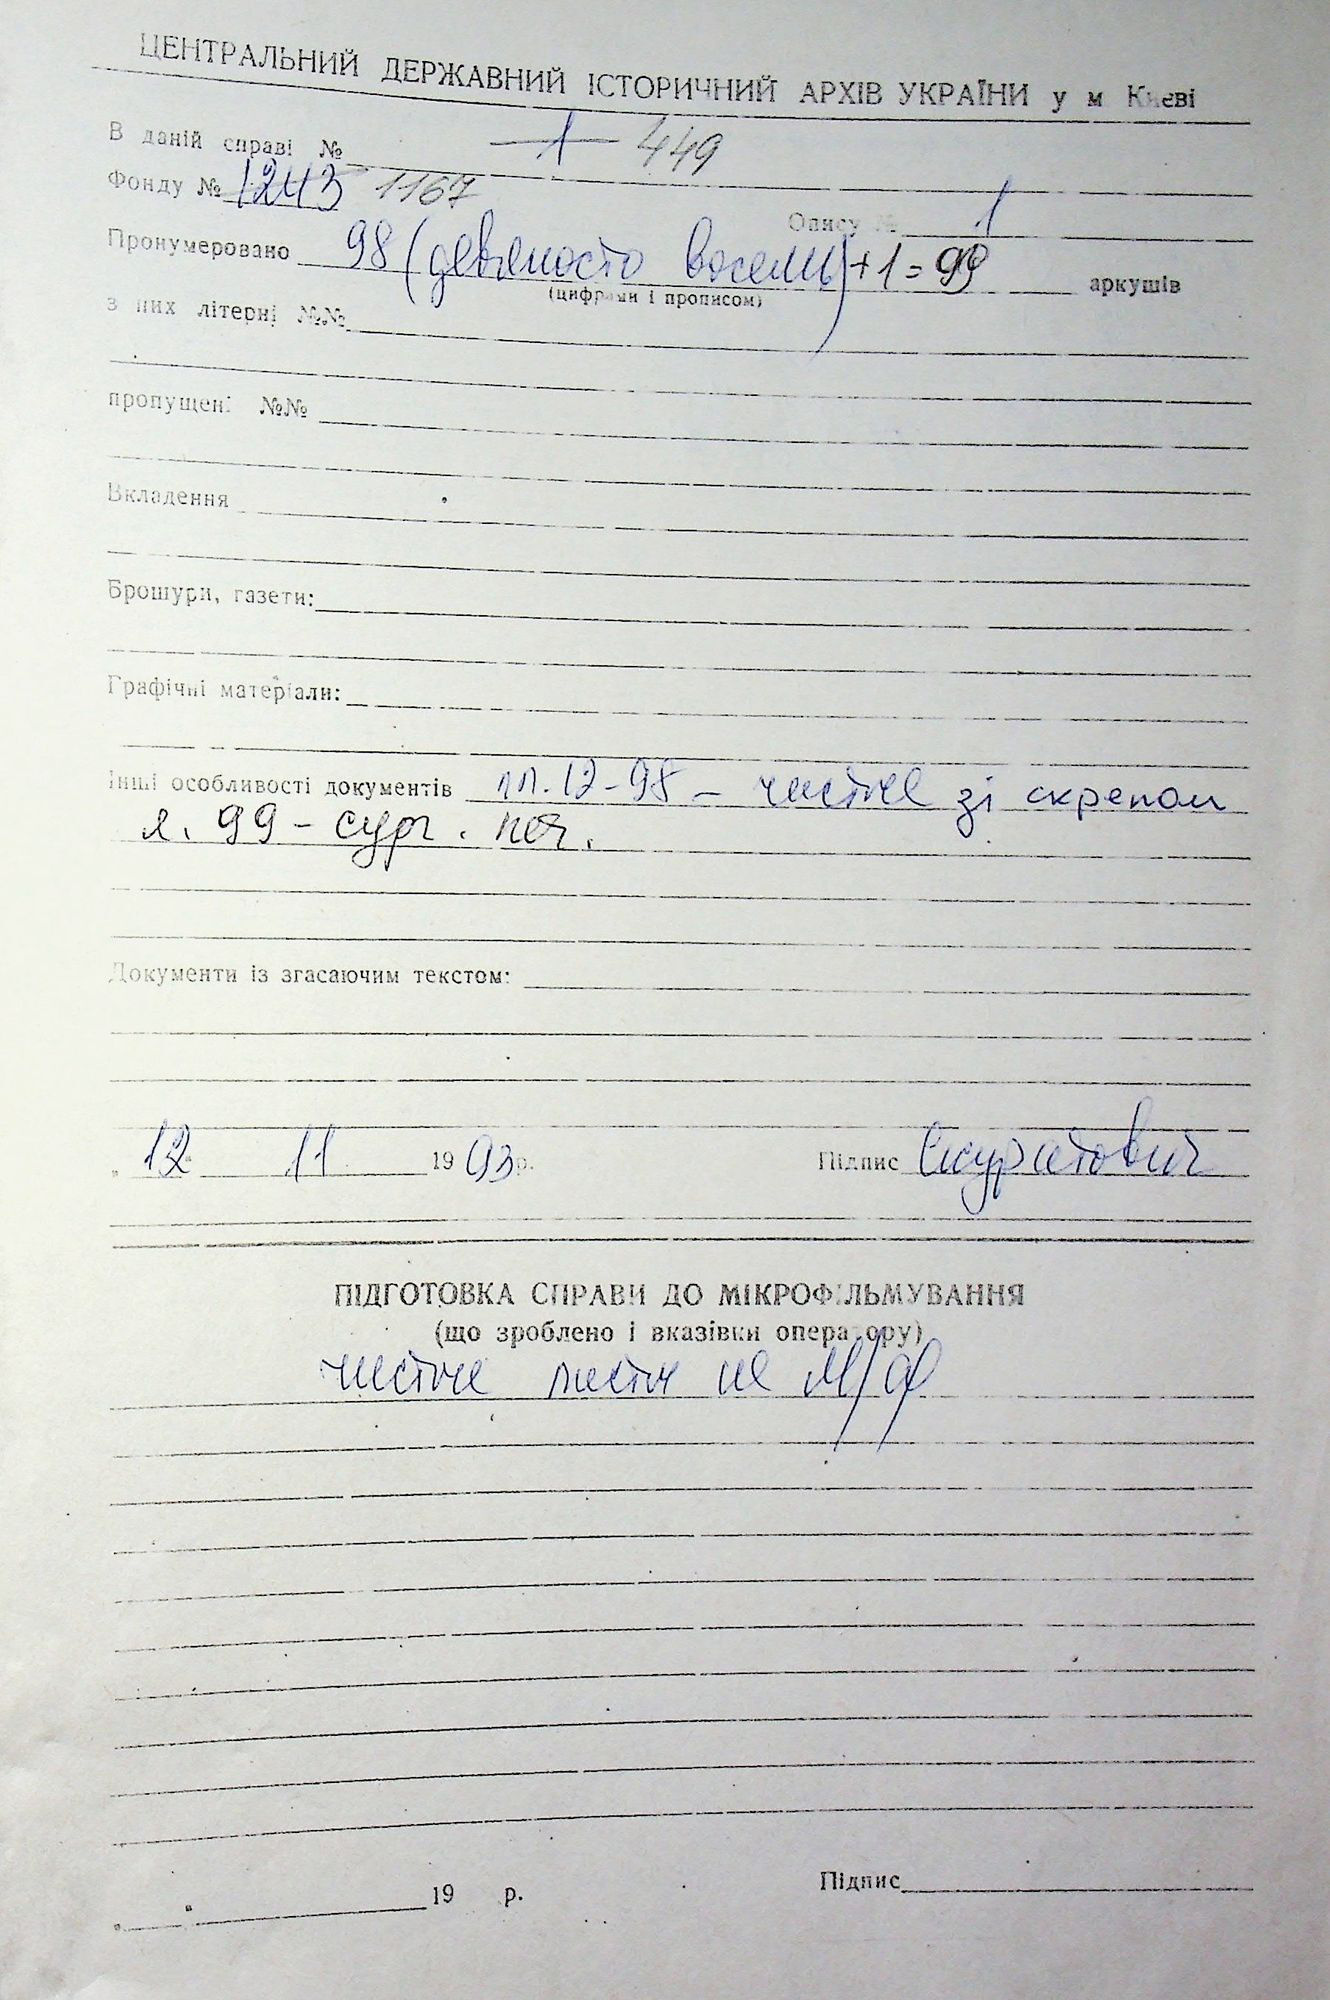 ЦЕНТРАЛЬНИЙ ДЕРЖАВНИЙ ІСТОРИЧНИЙ АРХІВ УКРАЇНИ у м Києві
В даній справі № 1 449
Фонду № 1243 1167 Опису № 1
Пронумеровано 98 (девяносто восемь) + 1 = 99 аркушів
(цифрами і прописом)
з них літерні №№
пропущені №№
Вкладення
Брошури, газети:
Графічні матеріали:
Інші особливості документів лл. 12-98 - чистые зі скрепом
л. 99 - сург. печ.
Документи із згасаючим текстом:
12 11 19 93 р. Підпис Скуратович
ПІДГОТОВКА СПРАВИ ДО МІКРОФІЛЬМУВАННЯ
(що зроблено і вказівки оператору)
чистые листы не м/ф
19 р. Підпис